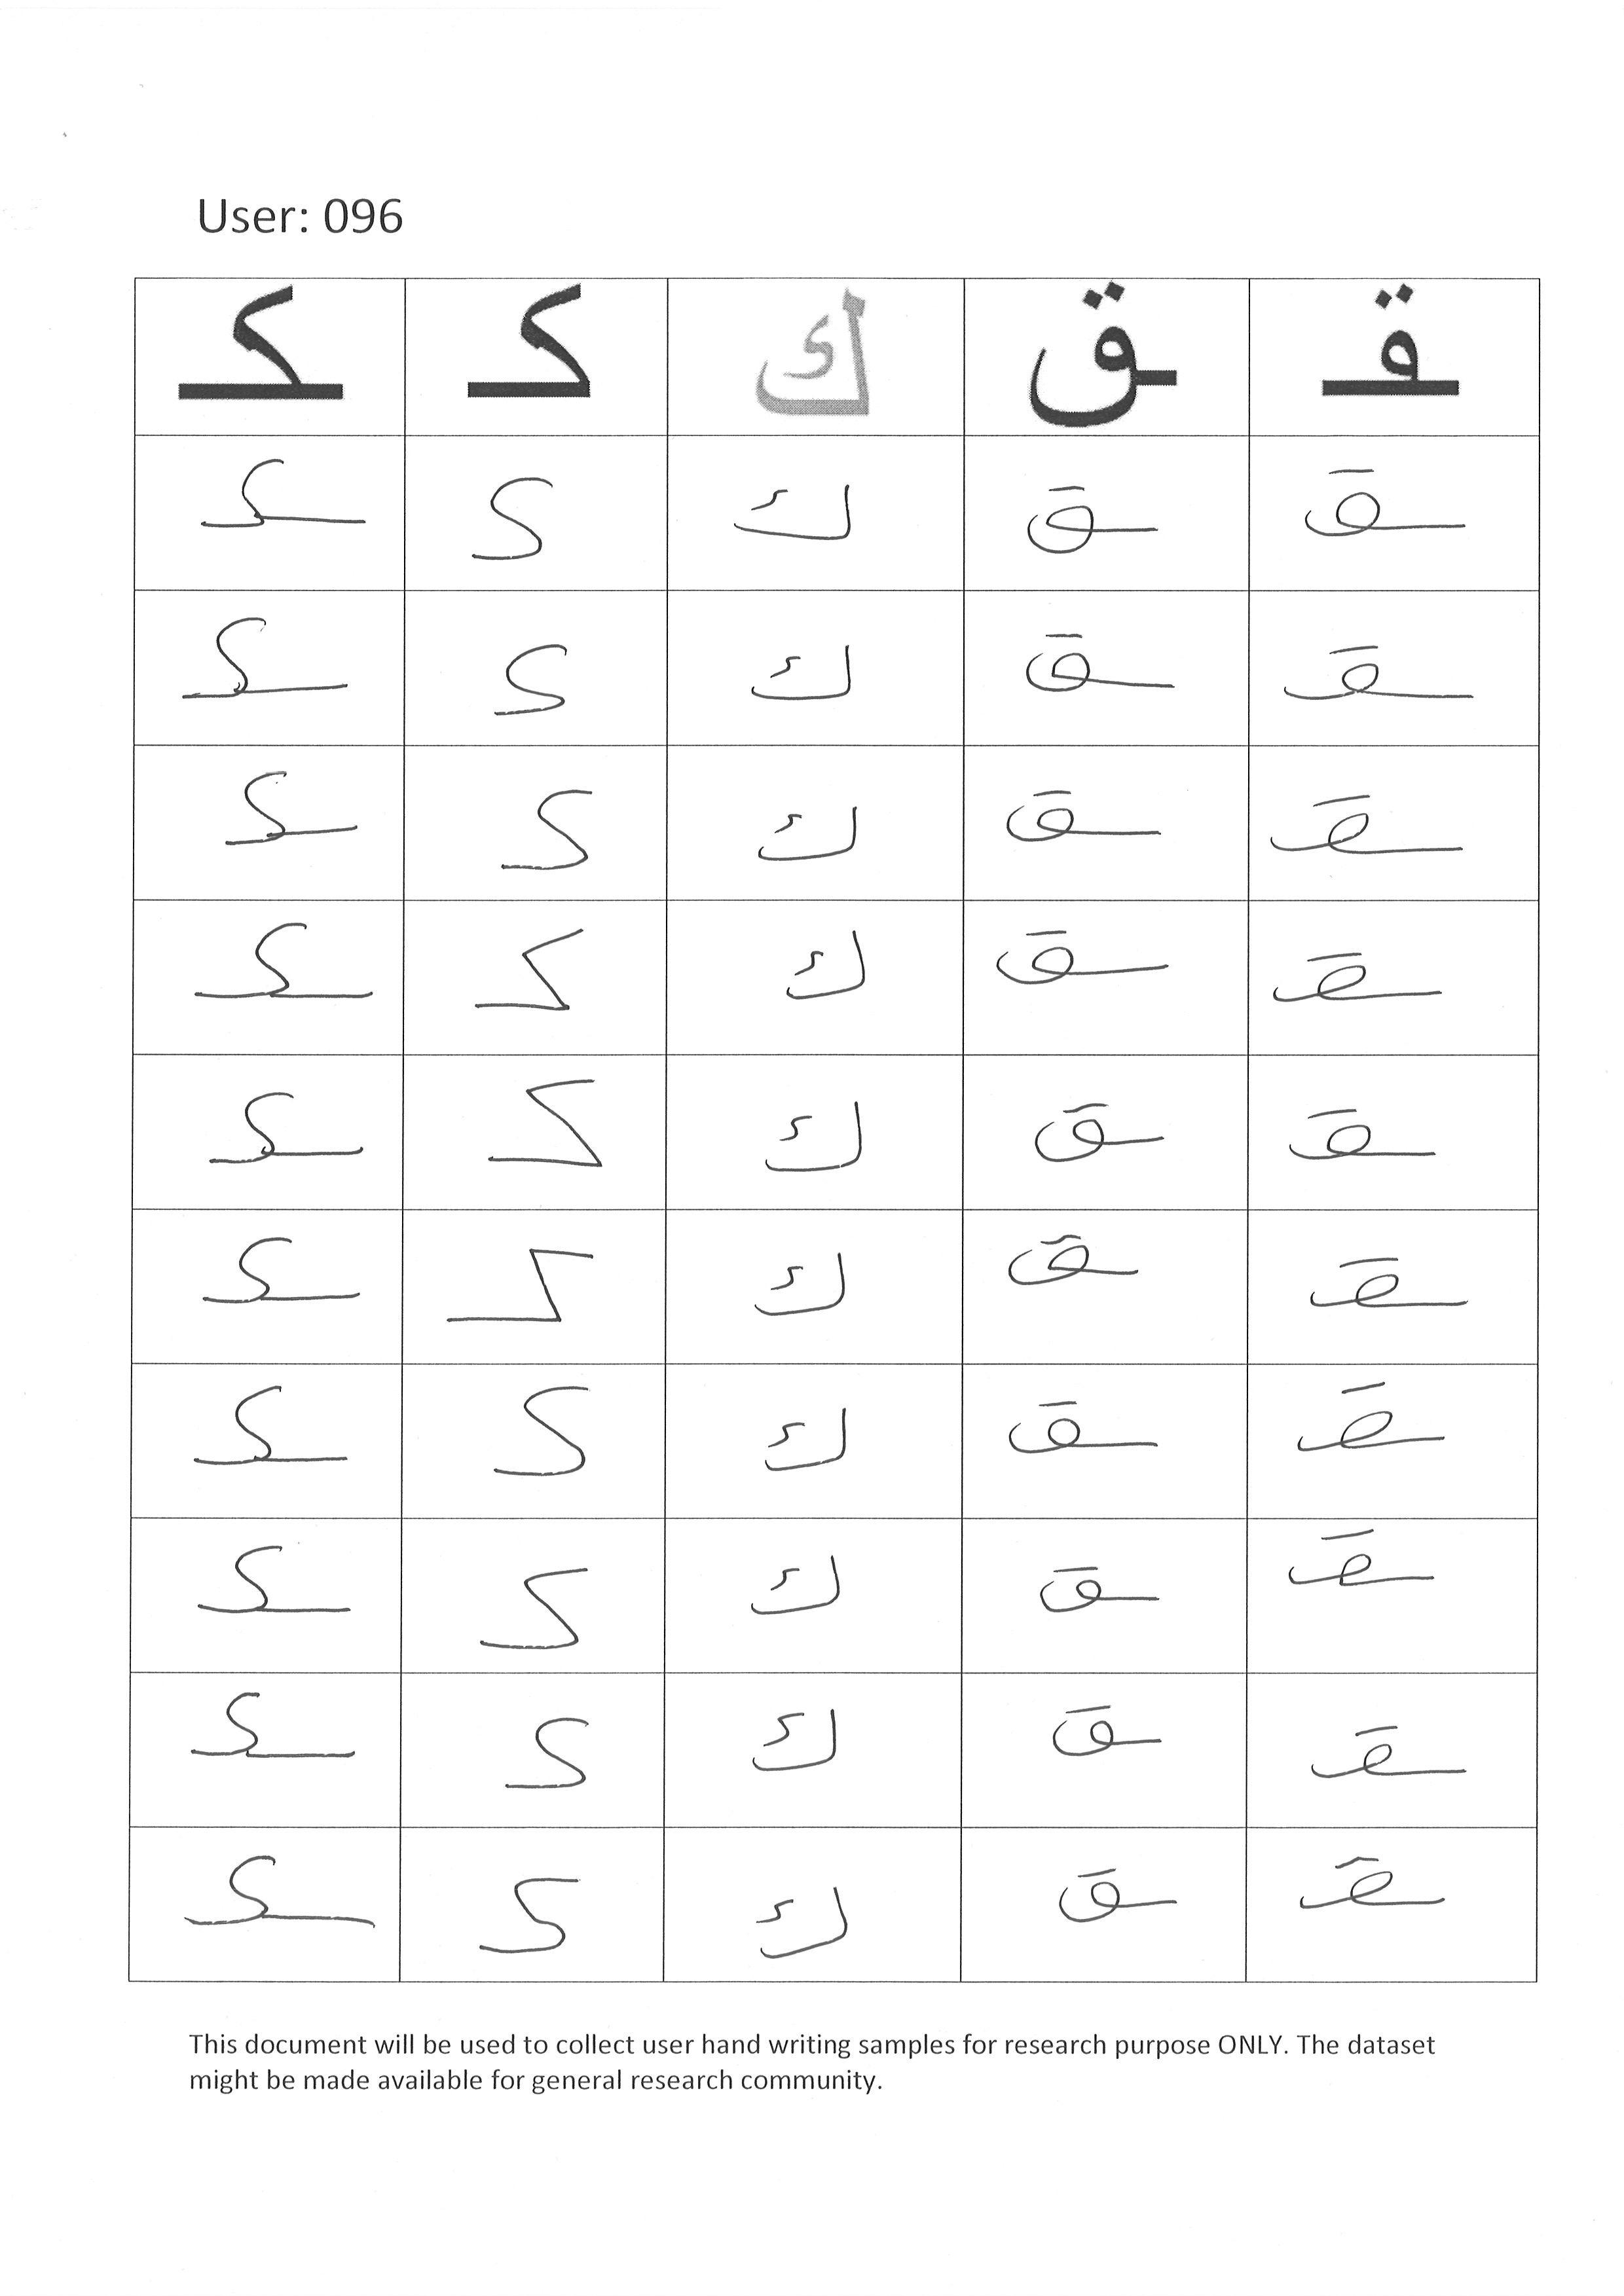 User: 096
ـكـ كـ ك ـق ـقـ
ـكـ كـ ك ـق ـقـ
ـكـ كـ ك ـق ـقـ
ـكـ كـ ك ـق ـقـ
ـكـ كـ ك ـق ـقـ
ـكـ كـ ك ـق ـقـ
ـكـ كـ ك ـق ـقـ
ـكـ كـ ك ـق ـقـ
ـكـ كـ ك ـق ـقـ
ـكـ كـ ك ـق ـقـ
ـكـ كـ ك ـق ـقـ
This document will be used to collect user hand writing samples for research purpose ONLY. The dataset
might be made available for general research community.